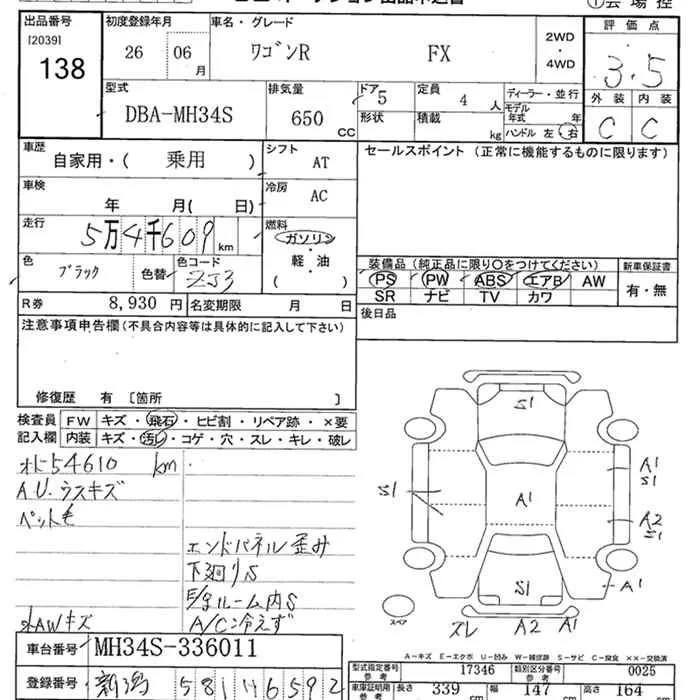 ①会場控
出品番号 初度登録年月 車名・グレード 評価点
[2039]
138 26 06月 ワゴンR FX 2WD・4WD 3.5
型式 排気量 ドア 定員 ディーラー・並行 外装 内装
DBA-MH34S 650CC 5 4人 モデル年式 年 C C
形状 積載 kg ハンドル 左・右
車歴 シフト セールスポイント (正常に機能するものに限ります)
自家用・( 乗用 ) AT
車検 年 月( 日) 冷房 AC
走行 5万4千609km 燃料 ガソリン・軽・油 ( )
色 ブラック 色替 色コード ZJ3
装備品 (純正品に限り○をつけてください) 新車保証書
PS PW ABS エアB AW 有・無
SR ナビ TV カワ
R券 8,930円 名変期限 月 日
後日品
注意事項申告欄(不具合内容等は具体的に記入して下さい)
修復歴 有 [箇所 ]
検査員 FW キズ・飛石・ヒビ割・リペア跡・×要
記入欄 内装 キズ・汚れ・コゲ・穴・スレ・キレ・破レ
54610 km
A.U.ラスキズ
ペット毛
エンドパネル歪み
下廻りS
ルーム内S
AWキズ A/C冷えず
S1
A1
S1
S1
A1
A2
S1
S1
A1
スペア
スレ A2 A1
A-キズ E-エクボ U-凹み W-補修跡 S-サビ C-腐食 ××-交換済
車台番号 MH34S-336011
型式指定番号 参考 17346 類別区分番号 参考 0025
登録番号 新潟 581 い6592
車庫証明用 参考 長さ 339cm 幅 147cm 高さ 164cm